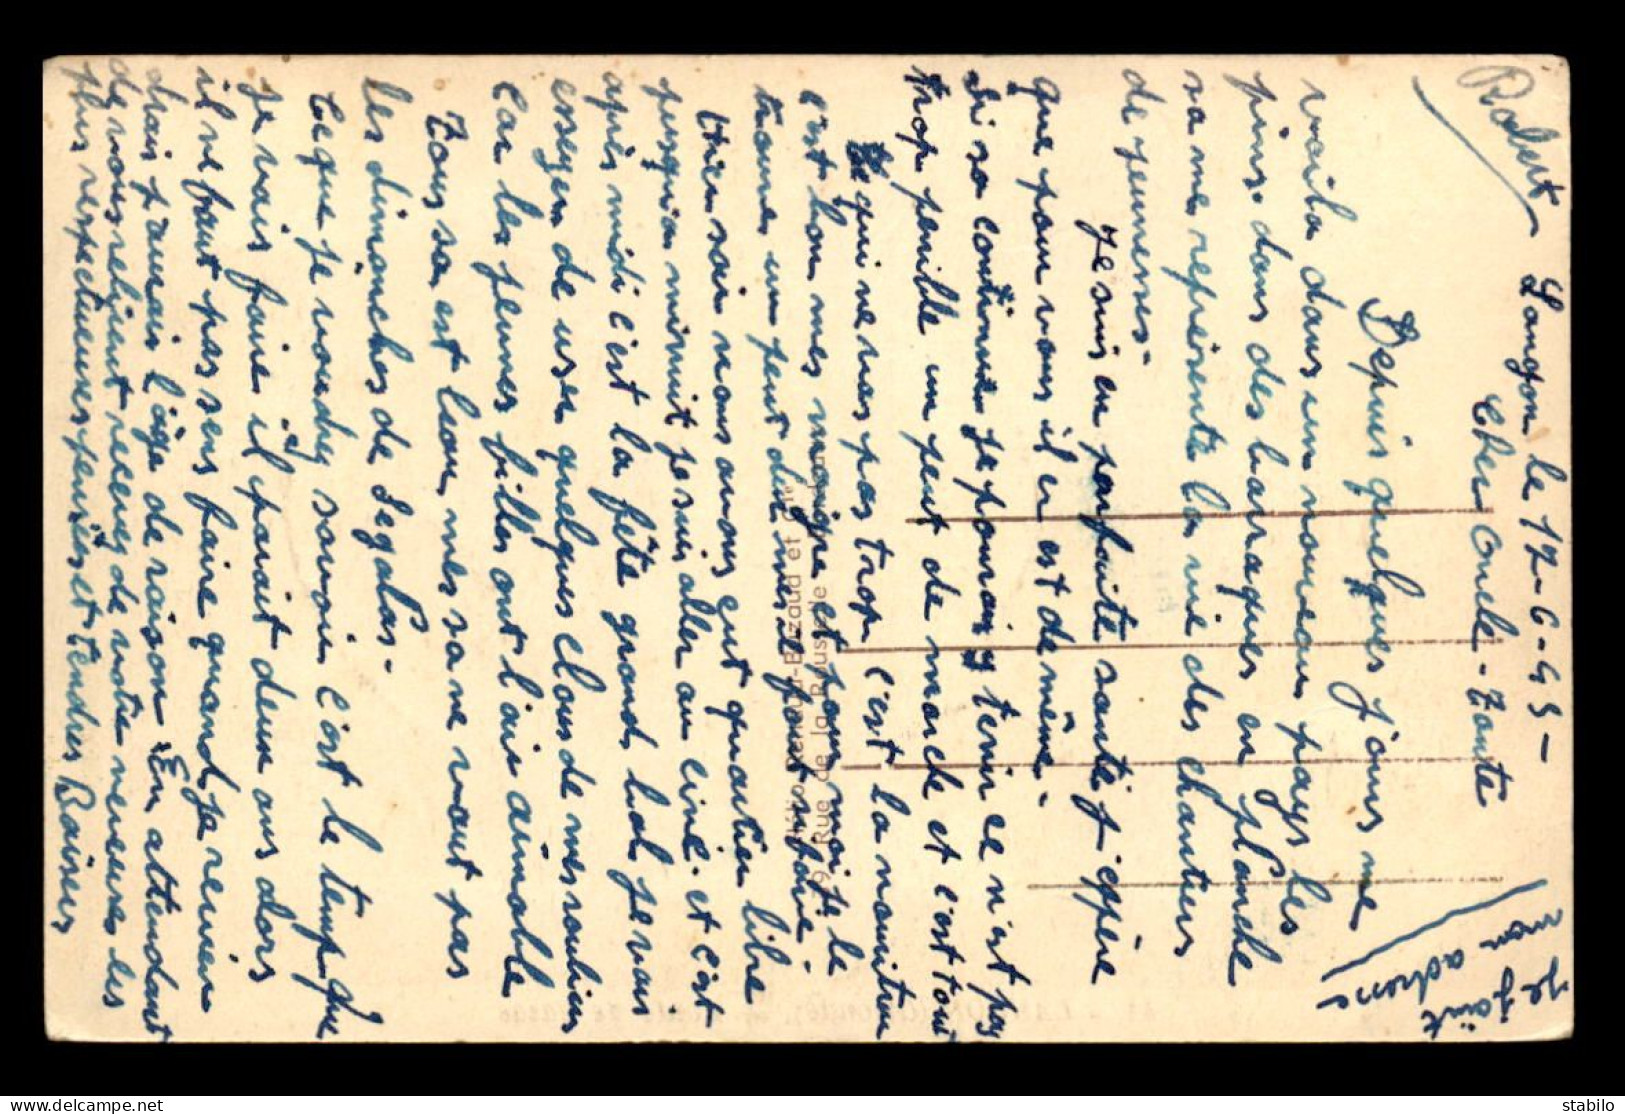 Robert
Langon le 17-6-45-
Cher Oncle - Tante
Je joint
mon adresse
Depuis quelques jours me
voila dans un nouveau pays les
pins. dans des barraques en planche
sa me represente la vie des chantiers
de jeunesses-
Je suis en parfaite santé j'espère
que pour vous il en est de même.
Si sa continue je pourais y tenir ce n'est pas
trop penible un peut de marche et c'est tout
Ce qui ne vas pas trop c'est la nourriture
c'est bon mes maigre et pour moi je le
trouve un peut dur mes il faut subire
Hier soir nous avons eut quartier libre
jusqu'a minuit je suis aller au ciné. et c'est
après midi c'est la fête grand bal je vais
esseyer de user quelques clous de mes souliers
Car les jeunes filles ont l'air aimable
Tous sa est beau, mes sa ne vaut pas
les dimanches de Segalas-
Ce que je voudrez savoir c'est le temp que
je vais faire il parait deux ans alors
il ne faut pas s'en faire quand je revien
drais j'aurais l'âge de raison. En attendant
de vous relire recevez de votre neveu les
plus respectueuses pensées et tendres Baisers
Bazaud et Cie
9 Rue de la
delcampe.net
stabilo